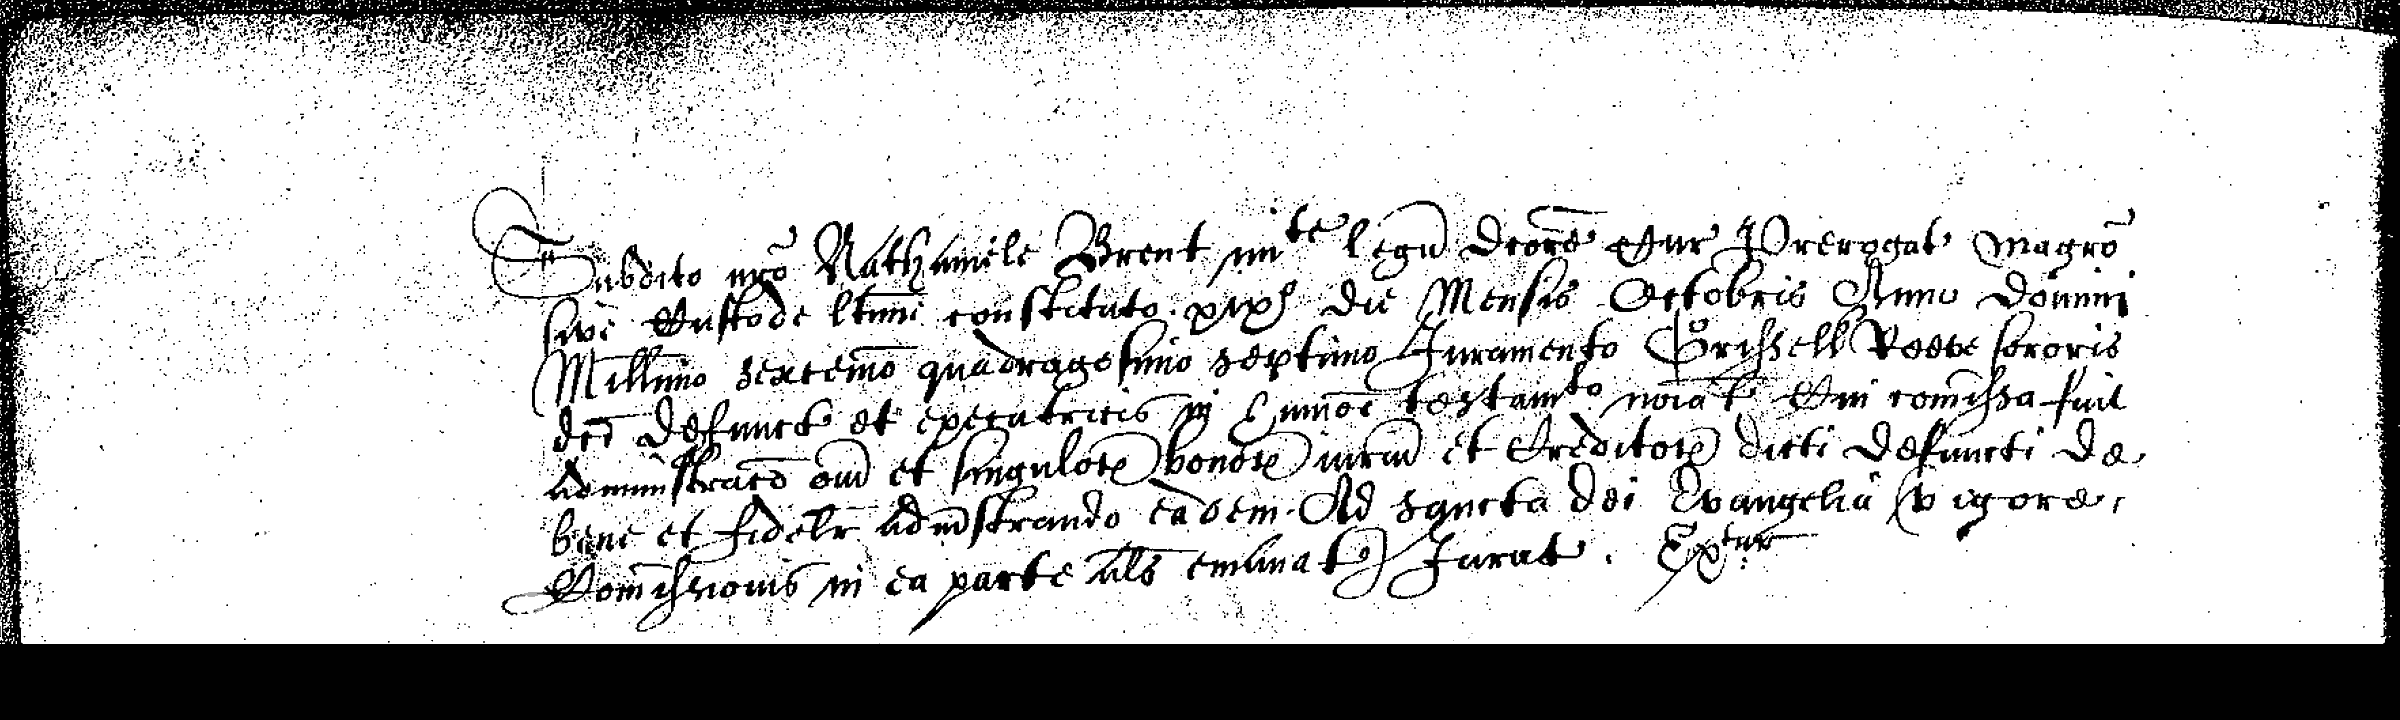 Subdito nr̄o Nathaniele Brent mi^te legū dc̄ore Cur Prerogat magr̄o
sive Custode ltīme constituto xix° die Mensis Octobris Anno Domini
Mill̄imo sexcen̄mo quadragesimo septimo Juramento Grissell Reeve sororis
dc̄i defunct et executricis in hm̄oi testam^to noīat Cui com̄issa fuit
Administrac̄o om̄i et singulor bonor iuriū et Creditor dicti defuncti de
bene et fidelr adm̄strando eadem Ad sancta dei Evangelia vigore
Com̄issionis in ea parte als eman̄at Jurat . Ex^tur